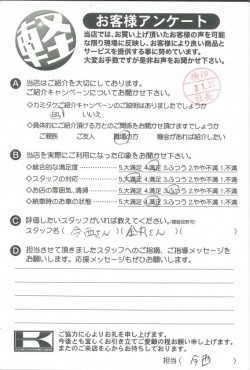 軽
お客様アンケート
当店では、お買い上げ頂いたお客様の声を可能
な限り現場に反映し、お客様により良い商品と
サービスを提供する事に努めています。
大変お手数ですが是非お声をお聞かせ下さい。
A 当店はご紹介を大切にしております。
ご紹介キャンペーンについてお聞かせ下さい。
・カミタケご紹介キャンペーンのご説明はありましたでしょうか
はい いいえ
・具体的にご紹介頂ける方とのご関係をお聞かせ頂けますでしょうか
ご親族 ご友人 職場の方 機会があれば紹介したい
B 当店を実際にご利用になった印象をお聞かせ下さい。
◇総合的な満足度 5.大満足 4.満足 3.ふつう 2.やや不満 1.不満
◇スタッフの対応 5.大満足 4.満足 3.ふつう 2.やや不満 1.不満
◇お店の雰囲気、清掃 5.大満足 4.満足 3.ふつう 2.やや不満 1.不満
◇納車時のお車の状態 5.大満足 4.満足 3.ふつう 2.やや不満 1.不満
C 評価したいスタッフがいれば教えてください。(複数回答可)
スタッフ名( 今西さん )( さん )
D 担当させて頂きましたスタッフへのご指摘、ご指導メッセージを
お願いします。応援メッセージもぜひお願いします。
K
ご協力に心よりお礼を申し上げます。
今後とも宜しくお引き立てご愛顧の程お願い申し上げます。
またのご来店を心からお待ちしております。
担当( 今西 )